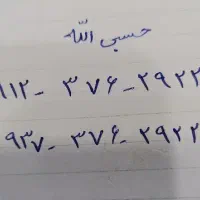 حسبی الله
۹۱۲- ۳۷۶-۲۹۲۲
۹۳۷- ۳۷۶-۲۹۲۲